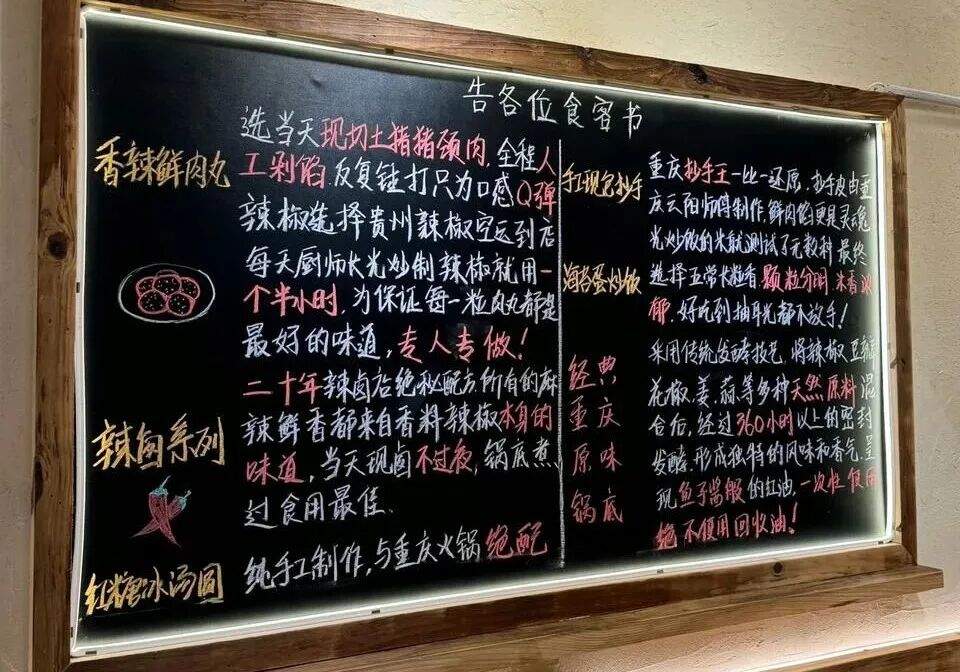 告各位食客书
香辣鲜肉丸
选当天现切土猪猪颈肉,全程人
工剁馅,反复锤打只为口感Q弹
辣椒选择贵州辣椒空运到店
每天厨师长光炒制辣椒就用一
个半小时,为保证每一粒肉丸都是
最好的味道,专人专做!
辣卤系列
二十年辣卤店绝秘配方所有的麻
辣鲜香都来自香料辣椒本身的
味道,当天现卤不过夜,锅底煮
过食用最佳.
红糖冰汤圆
纯手工制作,与重庆火锅绝配
手工现包抄手
重庆抄手王一比一还原,抄手皮由重
庆云阳师傅制作,鲜肉馅更是灵魂
海苔蛋炒饭
光炒饭的米就测试了无数种最终
选择五常长粒香,颗粒分明,米香浓
郁,好吃到抽耳光都不放手!
经典
重庆
原味
锅底
采用传统发酵技艺,将辣椒、豆瓣
花椒、姜、蒜等多种天然原料混
合后,经过360小时以上的密封
发酵,形成独特的风味和香气,呈
现鱼子酱般的红油,一次性使用
绝不使用回收油!